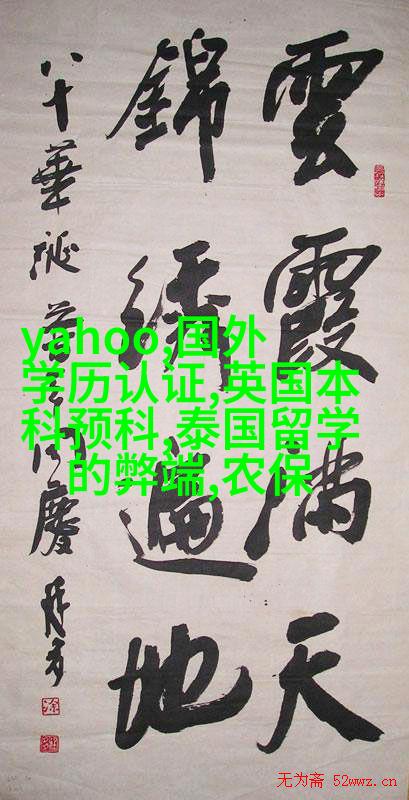 雲霞滿天
錦綉遍地
八十華誕 同慶
yahoo,国外
学历认证,英国本
科预科,泰国留学
的弊端,农保
无为斋 52wwz.cn